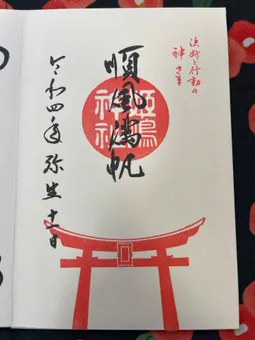 決断と行動の
神さま
順風満帆
姫嶋
神社
令和四年 弥生 十一日